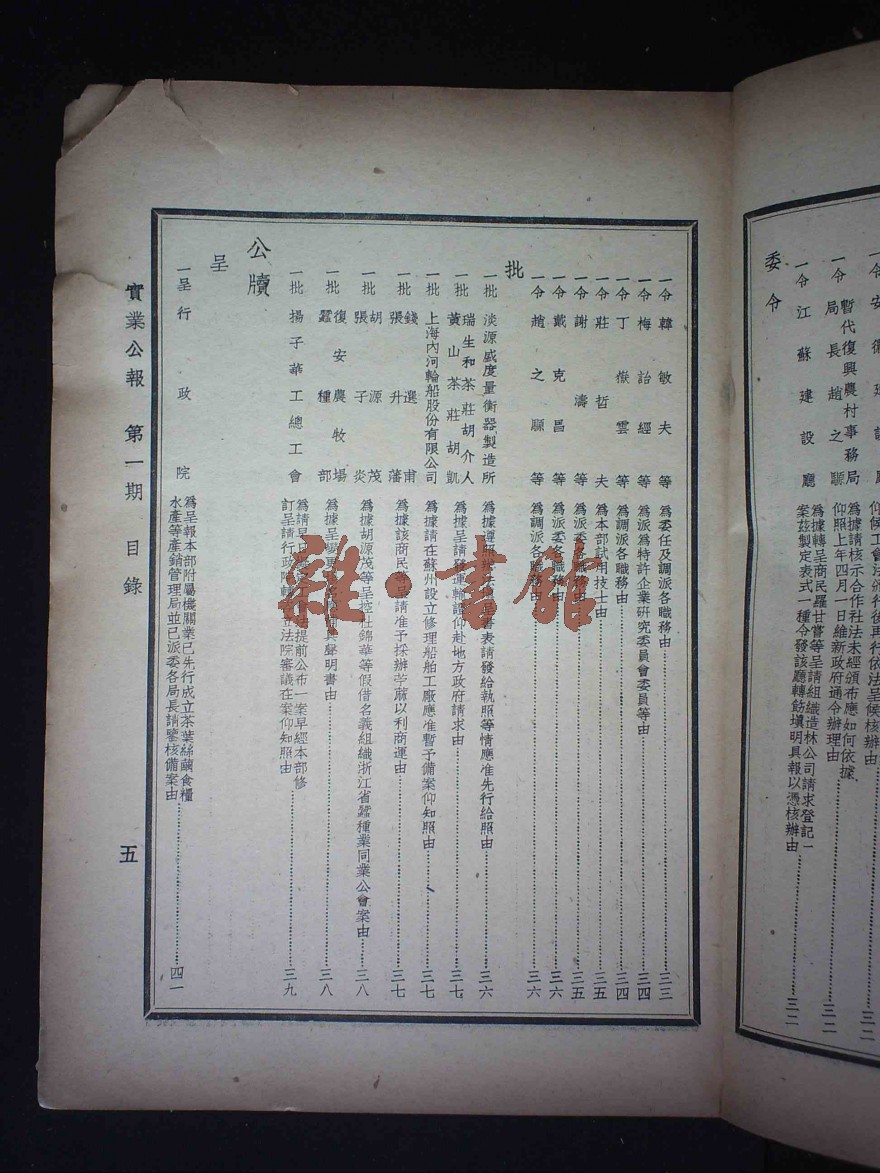 一令安徽建設廳
仰候工會法頒行後再行依法呈候核辦由……三二
一令暫代復興農村事務局局長趙之驥
為據請核示合作社法未經頒布應如何依據
仰照上年四月一日維新政府通令辦理由……三二
一令江蘇建設廳
為據轉呈商民羅甘嘗等呈請組織造林公司請求登記一
案茲製定表式一種令發該廳轉飭填明具報以憑核辦由……三二
委令
一令韓敏夫等 為委任及調派各職務由……三三
一令梅詒經等 為派為特許企業研究委員會委員等由……三四
一令丁嶽雲等 為調派各職務由……三四
一令莊哲夫 為本部試用技士由……三五
一令謝濤等 為派委各職務由……三五
一令戴克昌等 為派委各職務由……三六
一令趙之驥等 為調派各職務由……三六
批
一批淡源盛度量衡器製造所 為據遵照辦法填呈書表請發給執照等情應准先行給照由……三六
一批瑞生和茶莊胡介人
黃山茶莊胡凱
為據呈請發運輸證仰赴地方政府請求由……三七
一批上海內河輪船股份有限公司 為據請在蘇州設立修理船舶工廠應准暫予備案仰知照由……三七
一批錢選甫
張升藩
為據該商民等呈請准予採辦苧蔴以利商運由……三七
一批胡源茂
張子炎
為據胡源茂等呈控杜錦華等假借名義組織浙江省蠶種業同業公會案由……三八
一批復安農牧場
蠶種部
為據呈變更 具聲明書由……三八
一批揚子華工總工會
為請早日 法提前公布一案早經本部修
訂呈請行政院轉 立法院審議在案仰知照由……三九
公牘
呈
一呈行政院
為呈報本部附屬機關業已先行成立茶葉絲繭食糧
水產等產銷管理局並已派委各局長請鑒核備案由……四一
實業公報 第一期 目錄 五
雜·書館